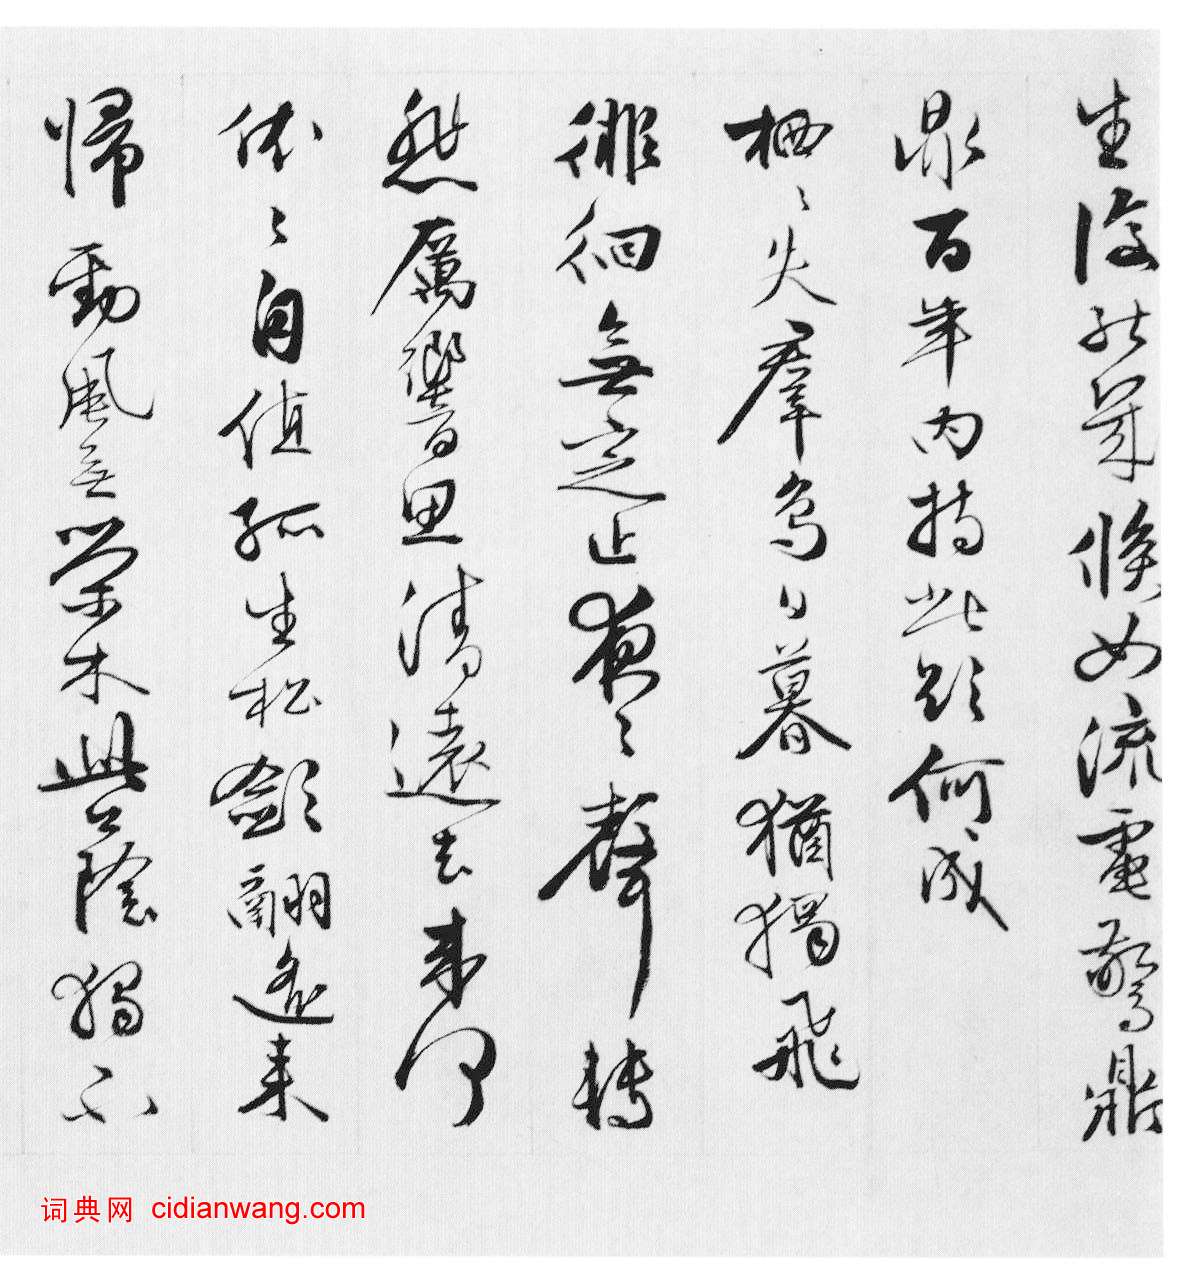 生復能幾倏如流電驚鼎
鼎百年內持此欲何成
栖〻失羣鳥日暮猶獨飛
徘徊無定止夜〻聲轉
悲厲響思清遠去來何
依〻自值孤生松斂翮遙來
歸勁風無榮木此蔭獨不
词典网 cidianwang.com